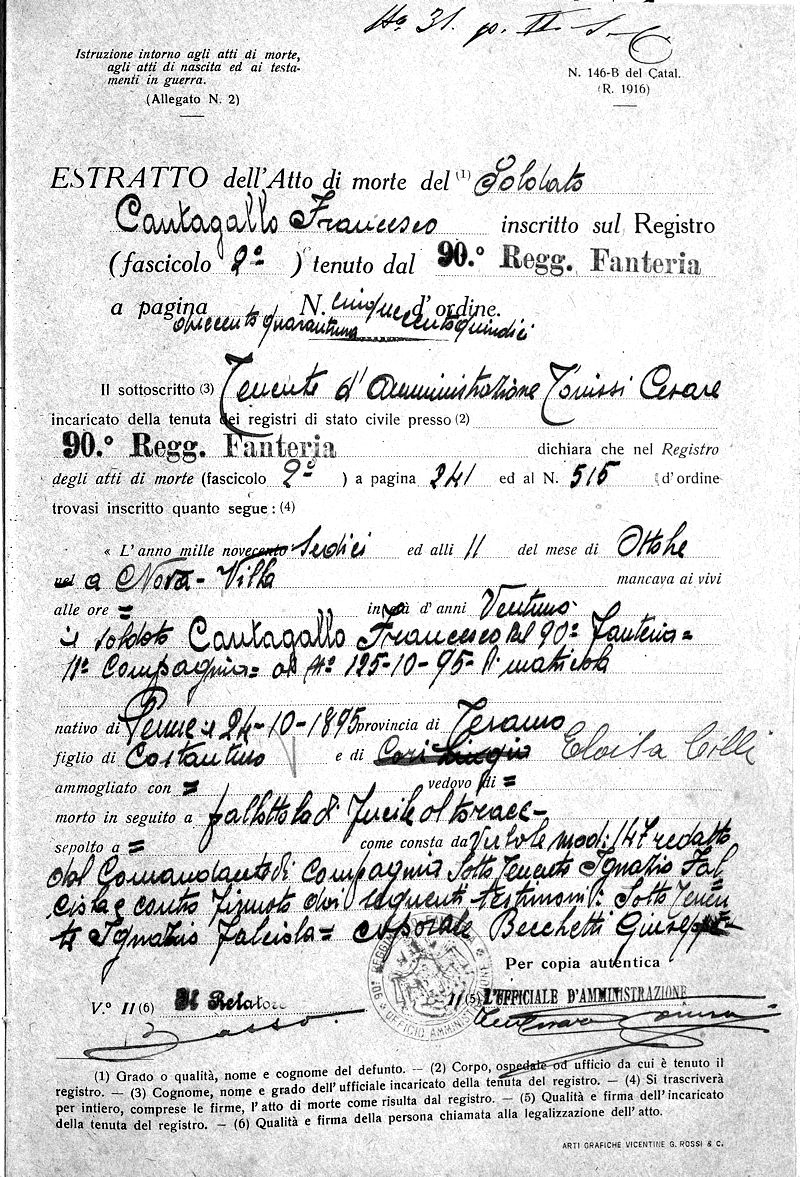 No 31. p. II. S. C
Istruzione intorno agli atti di morte,
agli atti di nascita ed ai testa-
menti in guerra.
(Allegato N. 2)
N. 146-B del Catal.
(R. 1916)
ESTRATTO dell'Atto di morte del (1) Soldato
Cantagallo Francesco inscritto sul Registro
(fascicolo 2° ) tenuto dal 90.° Regg. Fanteria
a pagina N. cinquecentoquindici d'ordine.
duecentoquarantuna
Il sottoscritto (3) Tenente d'Amministrazione Cesare
incaricato della tenuta dei registri di stato civile presso (2)
90.° Regg. Fanteria dichiara che nel Registro
degli atti di morte (fascicolo 2° ) a pagina 241 ed al N. 515 (d'ordine
trovasi inscritto quanto segue : (4)
« L'anno mille novecento sedici ed alli 11 del mese di Ottobre
nel a Nova-Villa mancava ai vivi
alle ore = in età d'anni Ventuno
il soldato Cantagallo Francesco del 90° Fanteria =
11a Compagnia = al No 125-10-95- di matricola
nativo di Penne il 24-10-1895 provincia di Teramo
figlio di Costantino e di Eloisa Cilli
ammogliato con = vedovo di =
morto in seguito a pallottola di fucile al torace -
sepolto a = come consta da Verbale mod: 147 redatto
dal Comandante di Compagnia Sotto Tenente Ignazio Fal
ciola e contro firmato dai seguenti testimoni: Sotto Tenen
te Ignazio Falciola = caporale Becchetti Giuseppe
Per copia autentica
V.° Il (6) Il Relatore Il (5) L'UFFICIALE D'AMMINISTRAZIONE
Basso
90° REGGIMENTO FANTERIA UFFICIO AMMINISTRAZIONE
(1) Grado o qualità, nome e cognome del defunto. — (2) Corpo, ospedale od ufficio da cui è tenuto il
registro. — (3) Cognome, nome e grado dell'ufficiale incaricato della tenuta del registro. — (4) Si trascriverà
per intiero, comprese le firme, l'atto di morte come risulta dal registro. — (5) Qualità e firma dell'incaricato
della tenuta del registro. — (6) Qualità e firma della persona chiamata alla legalizzazione dell'atto.
ARTI GRAFICHE VICENTINE G. ROSSI & C.